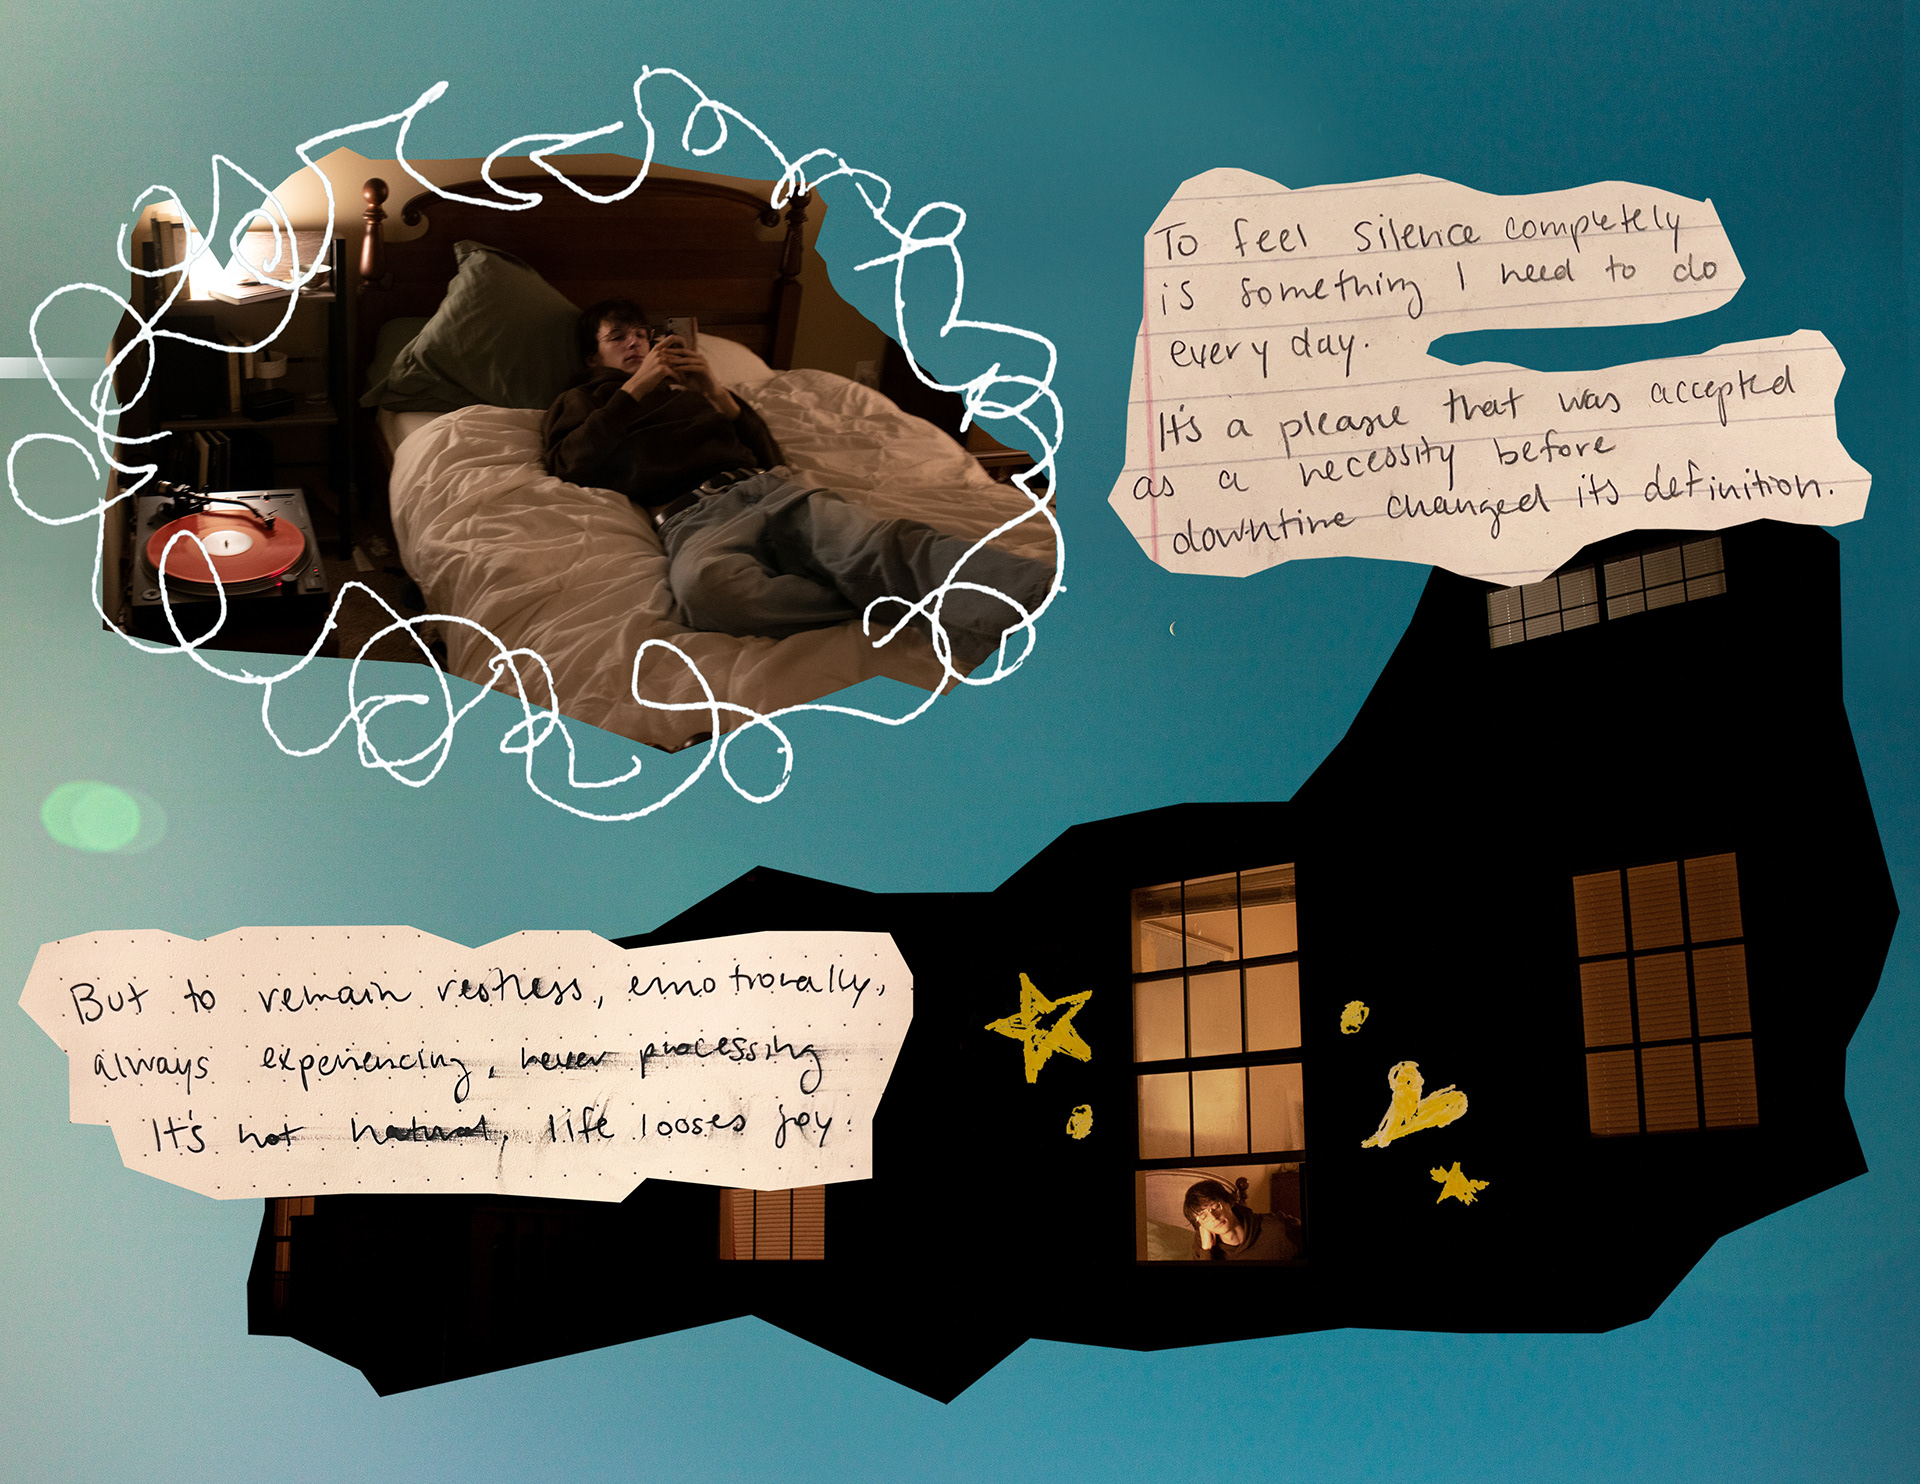 To feel silence completely
is something I need to do
every day.
It's a pleasure that was accepted
as a necessity before
downtime changed its definition.
But to remain restless, emotionally,
always experiencing, never processing
It's not natural, life looses joy.